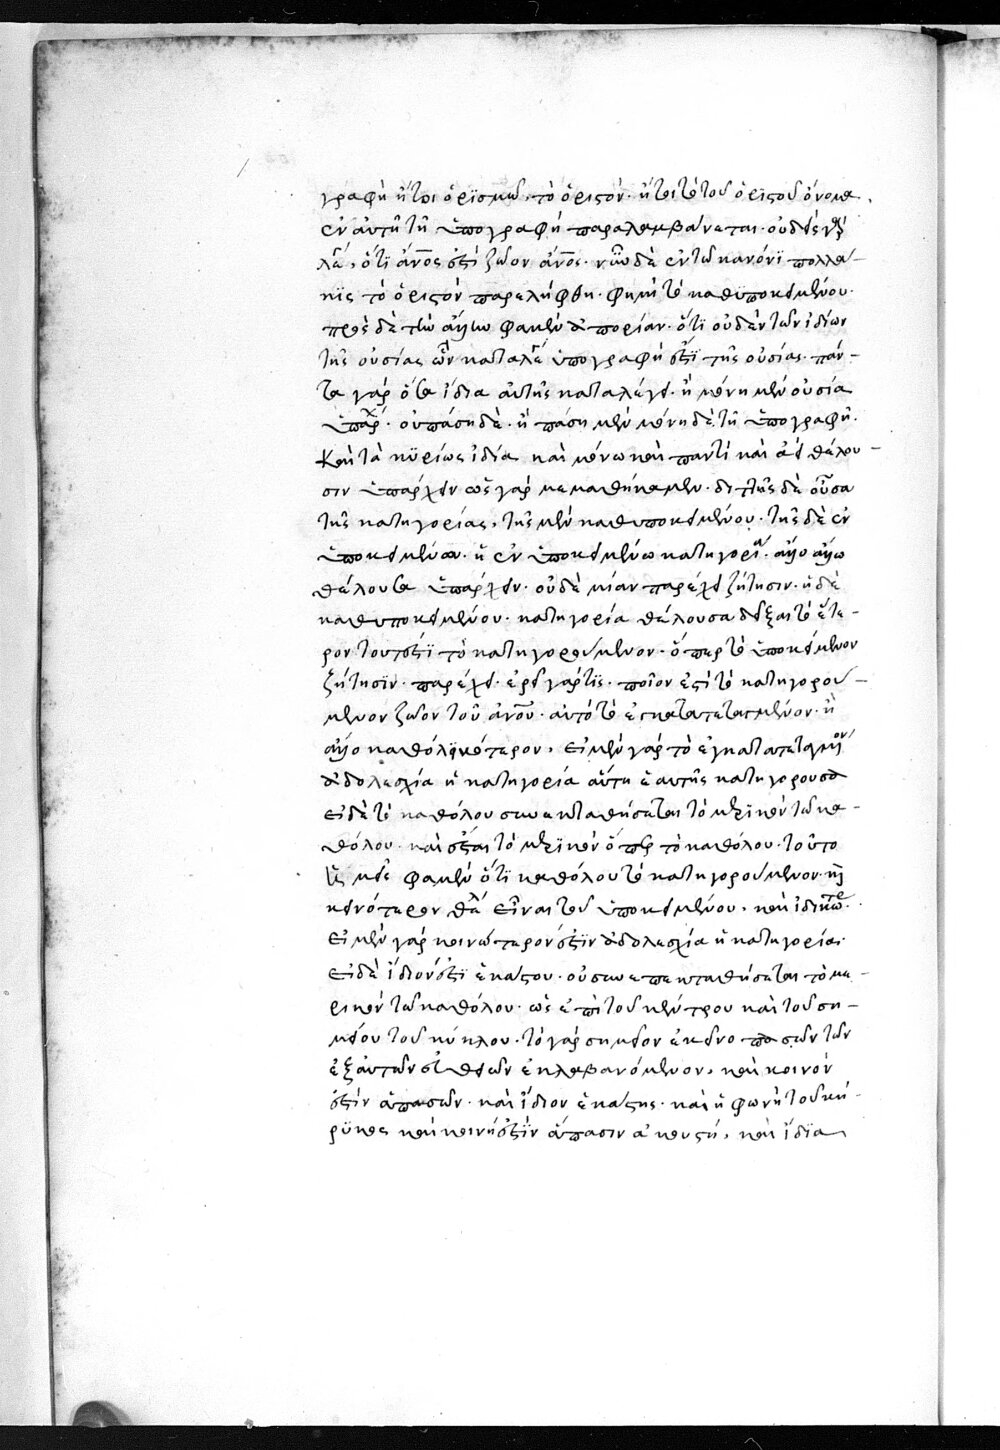 γραφὴ ἤτοι ὁρϊσμῶ, τὸ ὁριστόν. ἤτοι τὸ τοῦ ὁρϊστοῦ ὄνομα,
ἐν αὐτῆ τῆ ὑπογραφῆ παραλαμβάνεται. οὐδεὶς γὰρ
λέ, ὅτϊ ἄνος ἐστὶ ζῶον ἄνος. νῦν δὲ ἐν τῶ κανόνϊ πολλά-
κϊς τὸ ὁριστὸν παρελήφθη. φημὶ τὸ καθϋποκειμένου.
πρὸς δὲ τὴν φαμὲν ἀπορίαν. ὅτϊ οὐδὲν τῶν ἰδίων
τῆς οὐσίας καταλέ ὑπογραφή ἐστϊ τῆς οὐσίας. πάν-
τα γὰρ ὅσα ἴδια αὐτῆς καταλέγει. ἢ μόνη μὲν οὐσία
ὑπάρχ. οὐ πάση δὲ. ἢ πάση μὲν μόνη δὲ τῆ ὑπογραφῆ.
καὶ τὰ κϋρίως ἰδία καὶ μόνω καὶ παντὶ καὶ ἀεὶ θέλου-
σιν ὑπάρχειν ὡς γὰρ μεμαθήκαμεν. διττῆς δὲ οὔσα
τῆς κατηγορίας, τῆς μὲν καθυποκειμένου. τῆς δὲ ἐν
ὑποκειμένω. ἡ ἐν ὑποκειμένω κατηγορία. ἄλλο ἄλλω
θέλουσα ὑπάρχειν. οὐδὲ μίαν παρέχει ζήτησιν. ἡ δὲ
καθυποκειμένου. κατηγορία θέλουσα δεῖξαι τὸ ἕτε-
ρον τουτέστϊ τὸ κατηγορούμενον. ὅπερ τὸ ὑποκείμενον
ζήτησϊν. παρέχει. ἐρεῖ γάρ τϊς. ποῖον ἐστὶ τὸ κατηγορού-
μενον ζῶον τοῦ ἀνου. αὐτὸ τὸ ἐγκατατεταγμένον. ἢ
ἄλλο καθολϊκώτερον, εἰ μὲν γὰρ τὸ ἐγκατατεταγμένον
ἀδολεσχία ἡ κατηγορία αὕτη ἑαυτῆς κατηγοροῦσα
εἰ δὲ τὸ καθόλου συναναταθήσεται τὸ μερϊκὸν τῶ κα-
θόλου. καὶ ἔσται τὸ μερϊκὸν ὅπερ τὸ καθόλου. τοῦτο
φαμὲν ὅτϊ καθόλου τὸ κατηγορούμενον. καὶ
κοινότερον θέλει εἶναι τοῦ ὑποκειμένου, καὶ ἰδικώτε.
εἰ μὲν γὰρ κοινώτερον ἐστϊν ἀδολεσχία ἡ κατηγορία.
εἰ δὲ ἴδιον ἐστϊ ἑκάστου. οὐ συνεπεκταθήσεται τὸ με-
ρικὸν τῶ καθόλου. ὡς ἐπὶ τοῦ κέντρου καὶ τοῦ ση-
μείου τοῦ κύκλου. τὸ γὰρ σημεῖον ἐκεῖνο πασῶν τῶν
ἐξ αὐτῶν εὐθειῶν ἐκλαβανόμενον, καὶ κοινὸν
ἐστὶν ἁπασῶν. καὶ ἴδιον ἑκάστης. καὶ ἡ φωνὴ τοῦ κή-
ρϋκος καὶ κοινὴ ἐστϊν ἅπασιν ἀκουστὴ, καὶ ἰδϊα